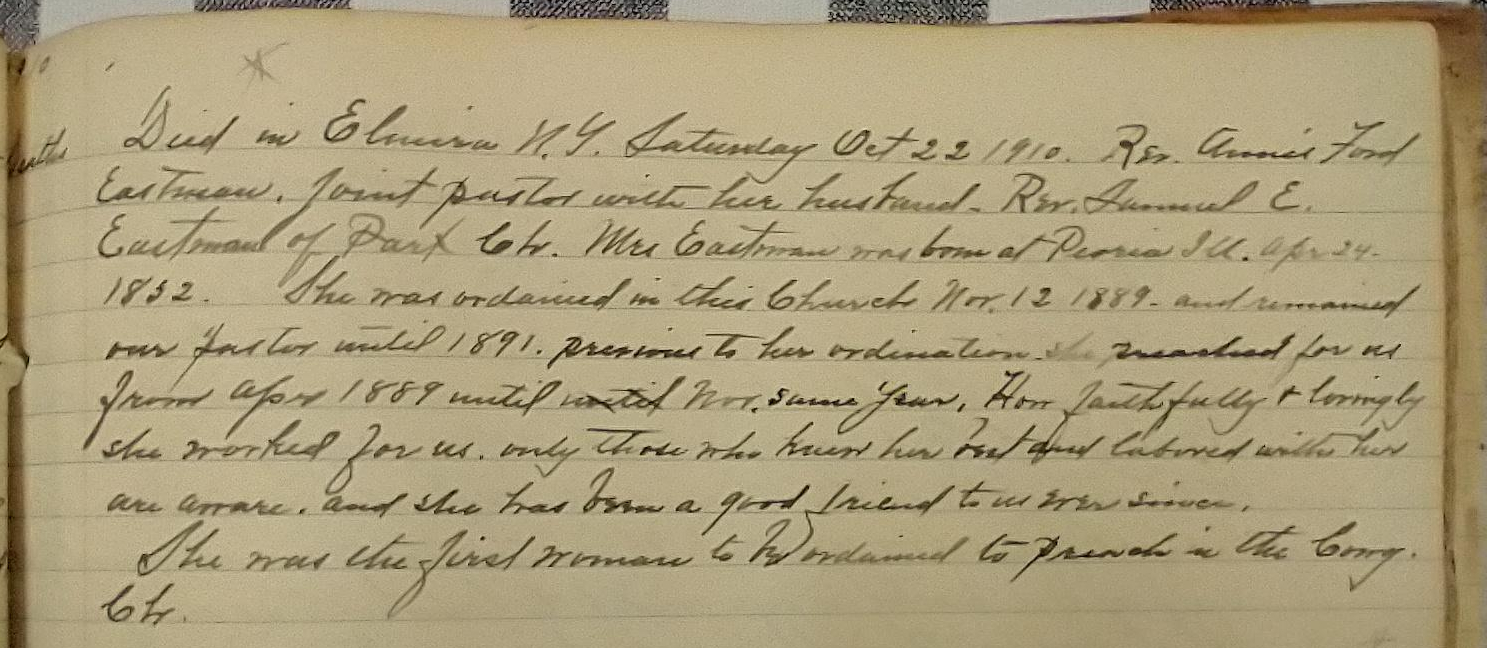 Died in Elmira N.Y. Saturday Oct 22 1910. Rev. Annis Ford
Eastman. Joint pastor with her husband - Rev. Samuel E.
Eastman of Park Ch. Mrs Eastman was born at Peoria Ill. Apr 24 -
1852. She was ordained in this Church Nov. 12 1889 - and remained
our pastor until 1891. previous to her ordination she preached for us
from Apr 1889 until until Nov. same year. How faithfully & lovingly
she worked for us. only those who knew her best and labored with her
are aware. and she has been a good friend to us ever since.
She was the first woman to be ordained to preach in the Cong.
Ch.